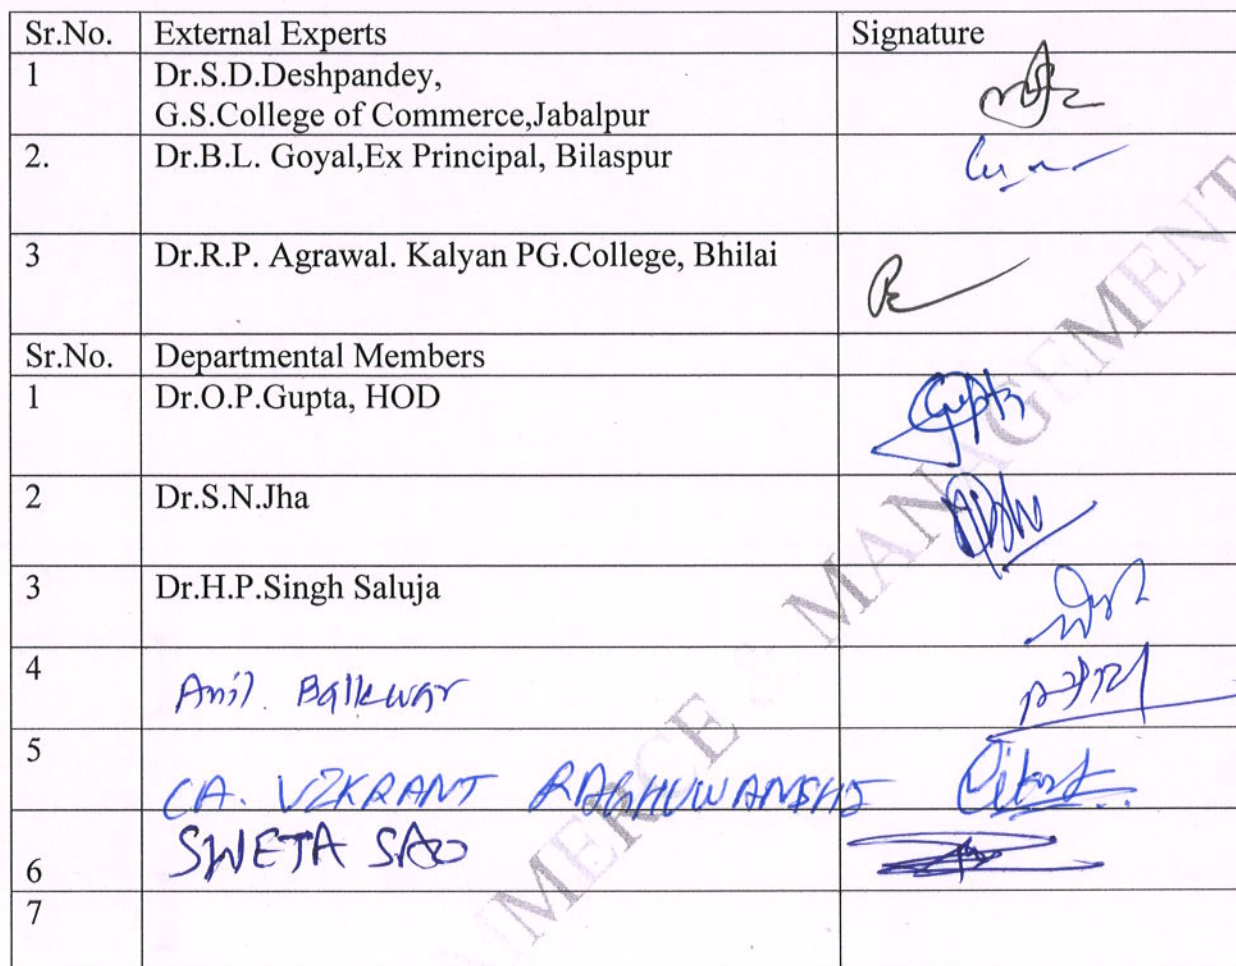 Sr.No. External Experts Signature
1 Dr.S.D.Deshpandey,
G.S.College of Commerce,Jabalpur
2. Dr.B.L. Goyal,Ex Principal, Bilaspur
3 Dr.R.P. Agrawal. Kalyan PG.College, Bhilai
Sr.No. Departmental Members
1 Dr.O.P.Gupta, HOD Gupta
2 Dr.S.N.Jha
3 Dr.H.P.Singh Saluja
4 Anil Balkewar
5 CA. VIKRANT RAGHUWANSHI
6 SWETA SAO
7
MANAGEMENT